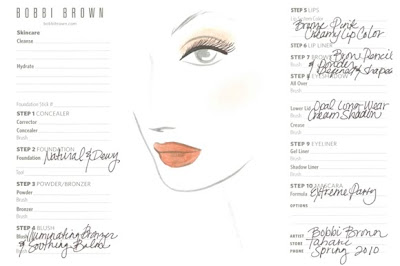 BOBBI BROWN
bobbibrown.com
Skincare
Cleanse
Hydrate
Foundation Stick #
STEP 1 CONCEALER
Corrector
Concealer
Brush
STEP 2 FOUNDATION
Foundation Natural & Dewy
Tool
STEP 3 POWDER/BRONZER
Powder
Brush
Bronzer
Brush
STEP 4 BLUSH
Blush Illuminating Bronzer
Brush & Soothing Balm
STEP 5 LIPS
Lip Color Bronze Pink
Creamy Lip Color
STEP 6 LIP LINER
STEP 7 BROWS Brow Pencil
& Powder
Brush Defined & Shaped
STEP 8 EYESHADOW
All Over
Brush
Lower Lid Opal Long-Wear
Brush Cream Shadow
Crease
Brush
STEP 9 EYELINER
Gel Liner
Brush
Shadow Liner
Brush
STEP 10 MASCARA
Formula Extreme Party
OPTIONS
ARTIST Bobbi Brown
STORE
PHONE Spring 2010